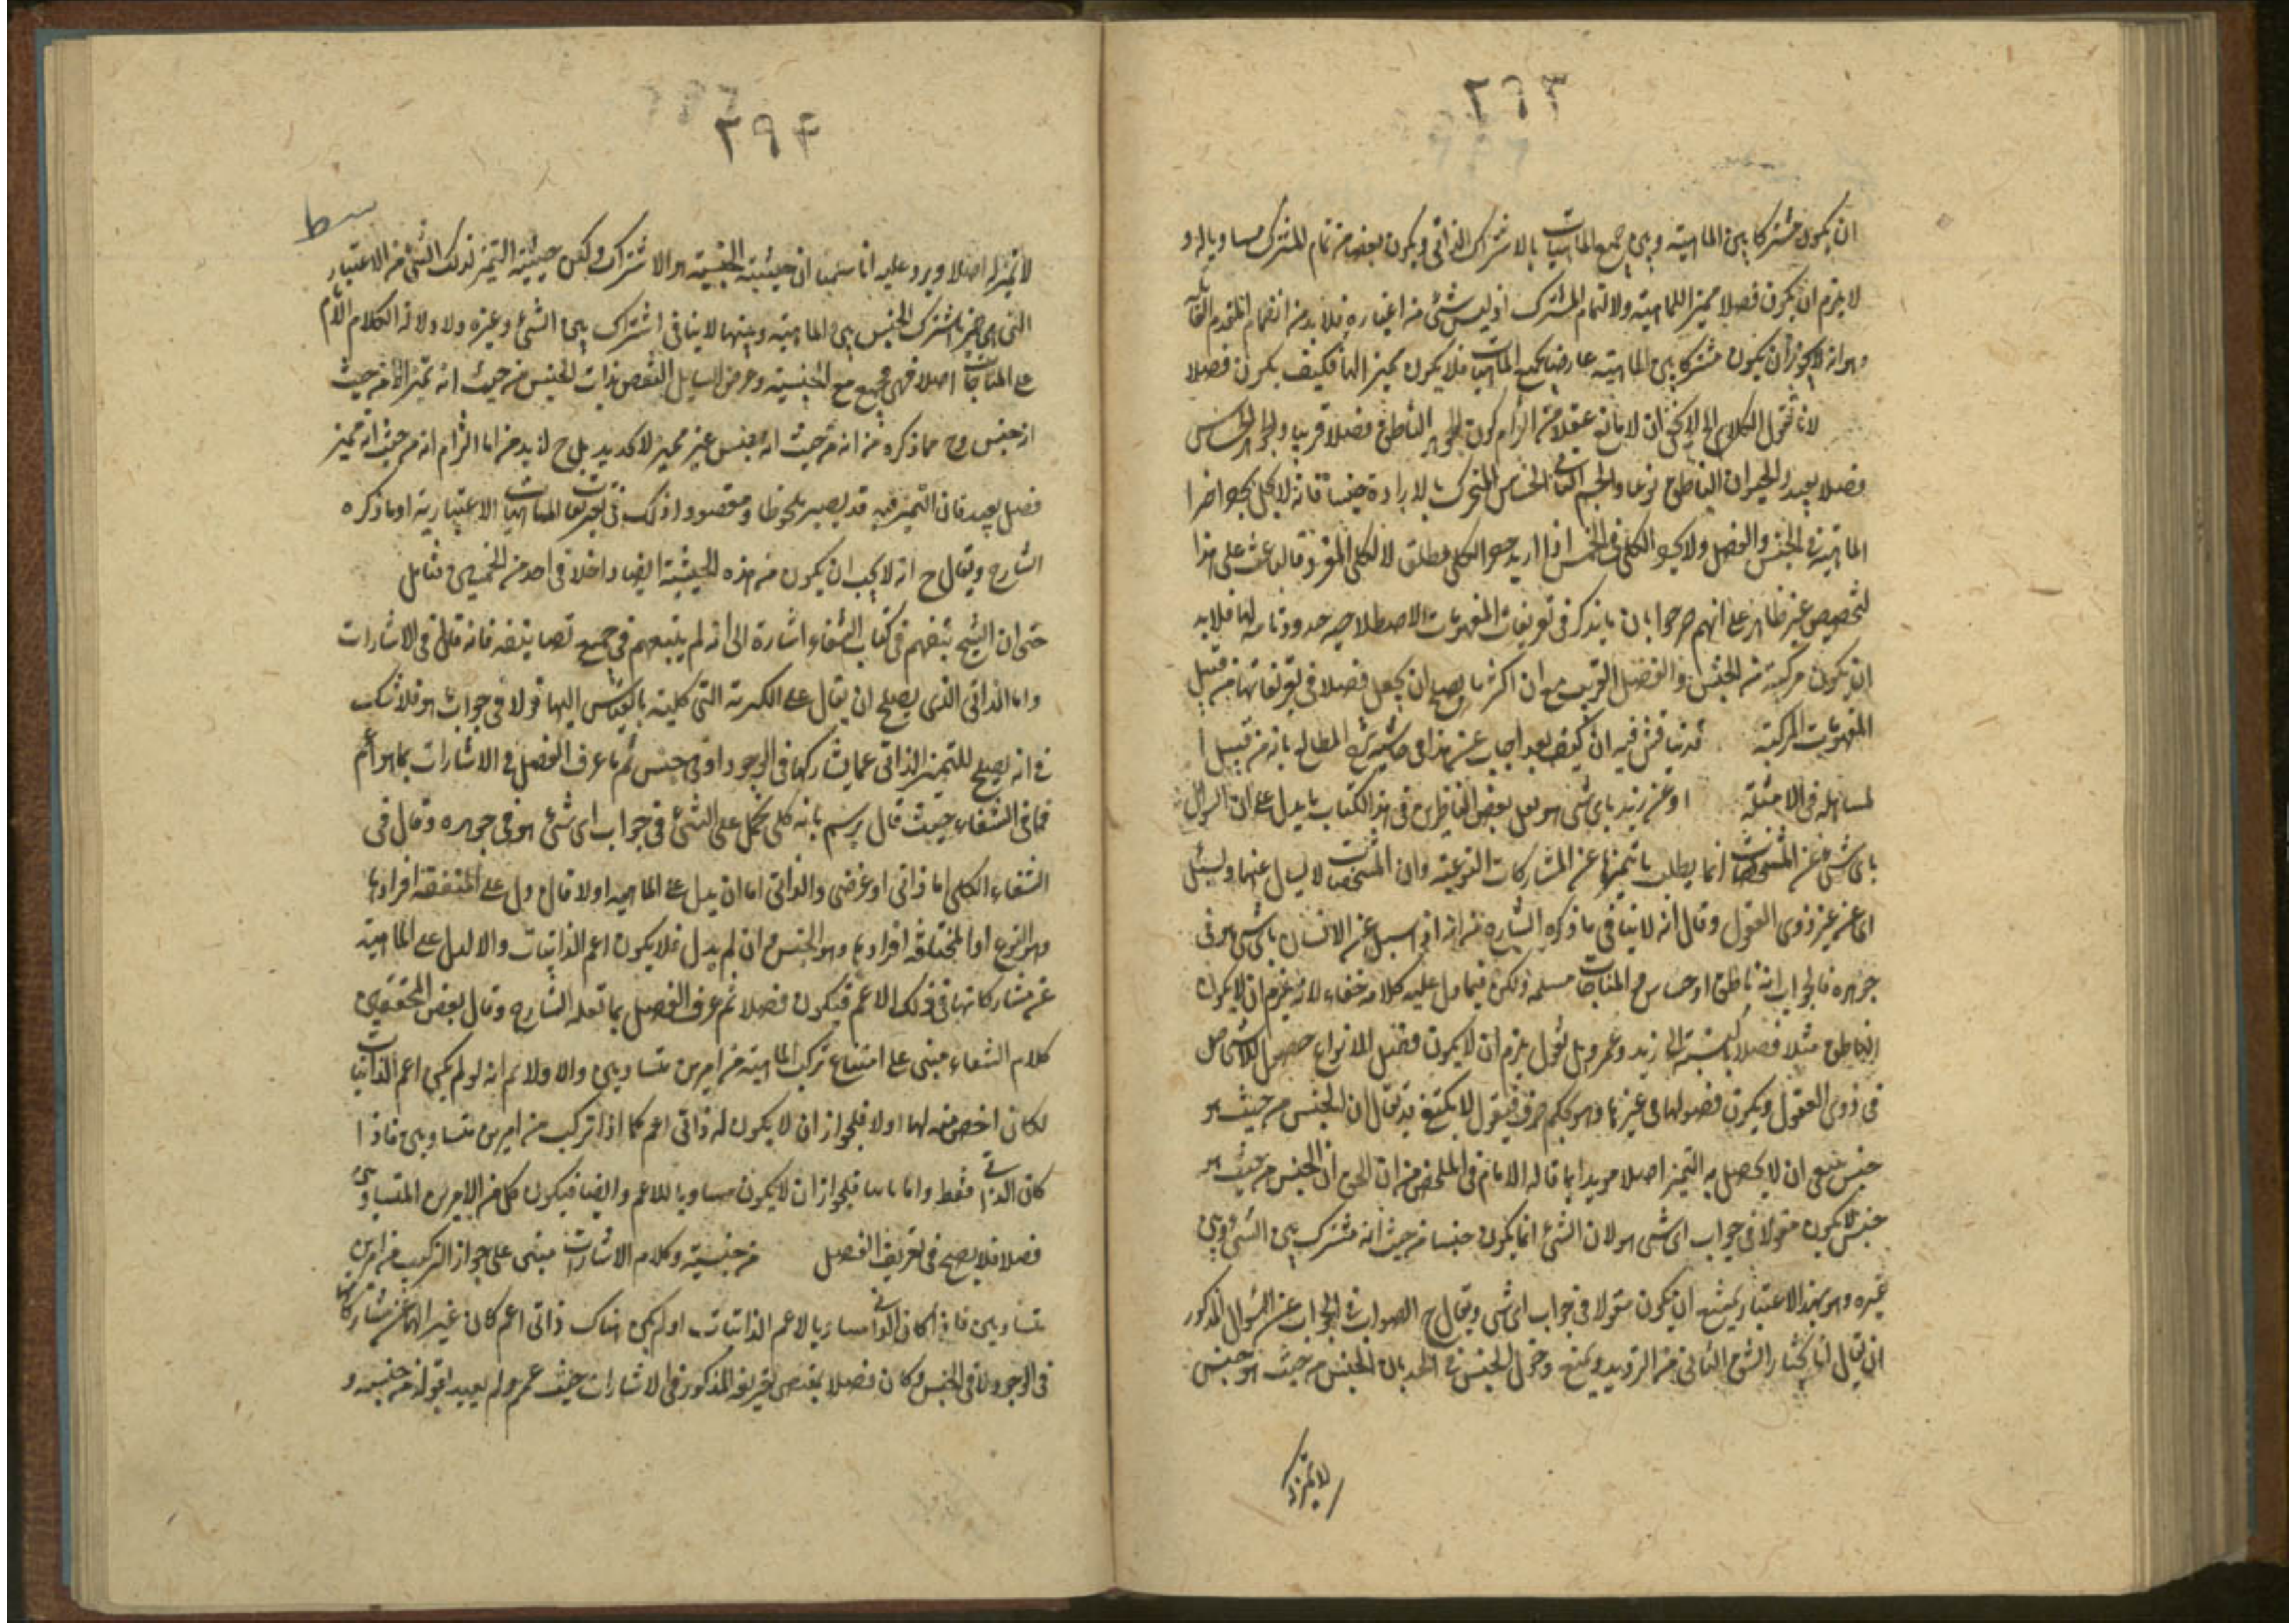 ٢٩٣
ان يكون مشتركا بين الماهية وبين جميع الماهيات بالاشتراك الذاتي ويكون بعضا من تمام المشترك مساويا له و
لا يلزم ان يكون فصلا مميزا للماهية ولا لتمام المشترك اذ ليس شئ من اغياره فلا بد من انضمام المقدم
وهو انه لا يجوز ان يكون مشتركا بين الماهية عارضا لجميع الماهيات فلا يكون مميزا لها فكيف يكون فصلا
لانا نقول الكلام لا يخفى ان لا مانع عقلا من الزام كون الجوهر الناطق فصلا قريبا والجوهر الحساس
فصلا بعيدا والحيوان الناطق نوعا والجسم النامي الحساس المتحرك بالارادة جنسا فانه لا يخل بحصر اجزا
الماهية في الجنس والفصل ولا بحصر الكلي في الخمس اذا اريد حصر الكلي مطلق لا الكلي المفرد على هذا
التخصيص غير ظاهر على انهم صرحوا بان ما يذكر في تعريفات المفهومات الاصطلاحية حدود تامة لها فلا بد
ان يكون مركبة من الجنس والفصل القريب مع ان اكثر ما يصح ان يجعل فصلا في تعريفاتها من قبيل
المفهومات المركبة قد يناقش فيه ان كيف بعد اجاب عن هذا في حاشية شرح المطالع بانه من قبيل ا
لمساهلة في الامثلة او عن زيد باي شئ هو لعل بعض الناظرين في هذا الكتاب ما يدل على ان السؤال
باي شئ عن المشخصات انما يطلب ما تميزها عن المشاركات النوعية وان المشخصات لا يسال عنها ويسئل
اى عن غير ذوى العقول وقال انه لا ينافي ما ذكره الشارح من انه اذا سئل عن الانسان باي شئ هو في
جوهره فالجواب انه ناطق او حساس مسلمة ولكن فيما دل عليه كلامه خفاء لانه يلزم ان لا يكون
الناطق مثلا فصلا بالنسبة الى زيد وعمرو بل نقول يلزم ان لا يكون فصل الانواع
في ذوى العقول ويكون فصولها في غيرها وهو تحكم صرف فيقول لا يكتفى قد يقال ان الجنس من حيث هو
جنس ينبغي ان لا يحصل به التميز اصلا مويدا بما قاله الامام في الملخص من ان الحق ان الجنس من حيث هو
جنس لا يكون مقولا في جواب اي شئ هو لان الشئ انما يكون جنسا من حيث انه مشترك بين الشئ وبين
غيره وهو بهذا الاعتبار يمتنع ان يكون مقولا في جواب اي شئ ويقال ح الصواب في الجواب عن السؤال المذكور
ان يقال انا نختار الشق الثاني من الترديد ونمنع دخول الجنس في الحد بان الجنس من حيث هو جنس
لا تميز له
٢٩٤
لا تميز له اصلا ويرد عليه انا سلمنا ان حيثية الجنسية هو الاشتراك ولكن حيثية التميز لذلك الشئ من الاعتبار
اشتراك الجنس بين الماهية وبينها لا ينافي اشتراك بين الشئ وغيره ولا دلالة الكلام الامام
على اصلا فهي تجتمع مع الجنسية وغرض السائل النقض بذات الجنس من حيث انه تميز لا من حيث
انه جنس وح مما ذكره من انه من حيث انه جنس غير مميز لا يفيد بل ح لا بد من اما التزام انه من حيث انه مميز
فصل بعيد فان التميز فيه قد يصير ملحوظا ومقصودا وذلك في تعريفات الماهيات الاعتبارية او ما ذكره
الشارح ويقال ح انه لا يجب ان يكون من هذه الحيثية ايضا داخلا في احد من الخمس فتامل
حتى ان الشيخ في كتاب الشفاء اشارة الى انه لم يتبعهم في جميع تصانيفه فانه قال في الاشارات
واما الذاتي الذي يصلح ان يقال على الكثرة التي كليته بالقياس اليها قولا في جواب ما هو فلا شك
في انه يصلح للتميز الذاتي عما يشاركها في الوجود او في جنس ثم ما عرف الفصل في الاشارات بما هو اعم
مما في الشفاء حيث قال يرسم بانه كلي يحمل على الشئ في جواب اي شئ هو في جوهره وقال في
الشفاء الكلي اما ذاتي او عرضي والذاتي اما ان يدل على الماهية اولا فان دل على المتفقة افرادها
وهو النوع او المختلفة افرادها وهو الجنس وان لم يدل فلا يكون اعم الذاتيات والا لدل على الماهية
عن مشاركاتها في ذلك الاعم فيكون فصلا ثم عرف الفصل بما نقله الشارح وقال بعض المحققين
كلام الشفاء مبني على امتناع تركب الماهية من امرين متساويين والا ولا ثم انه لو لم يكن اعم الذاتيات
لكان اخص منه لها اولا فلجواز ان لا يكون له ذاتي اعم كما اذا تركب من امرين متساويين فاذا
كان الذاتي فقط واما ثانيا فلجواز ان لا يكون مساويا للاعم وايضا فيكون كل من الامرين المتساويين
فصلا فلا يصح في تعريف الفصل من جنسية وكلام الاشارات مبني على جواز التركيب من امرين
متساويين فاذا كان الذاتي مساويا لاعم الذاتيات او لم يكن هناك ذاتي اعم كان مميزا لها عن مشاركاتها
في الوجود لا في الجنس وكان فصلا بمقتضى تعريفه المذكور في الاشارات حيث عمم ولم يقيد بقوله من جنسه و